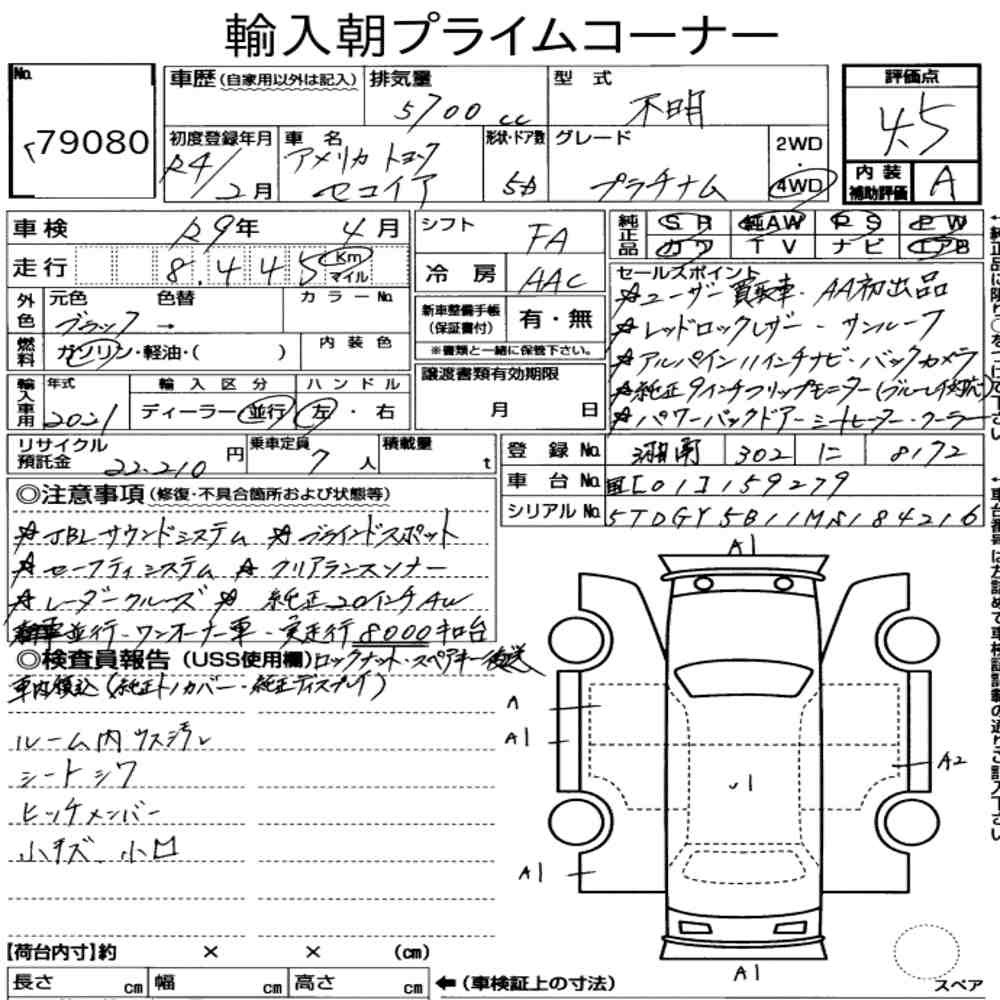 輸入朝プライムコーナー
No.
79080
車歴(自家用以外は記入)
排気量
5700cc
型式
不明
評価点
4.5
初度登録年月
R4/2月
車名
アメリカ トヨタ
セコイア
形状・ドア数
5D
グレード
プラチナム
2WD
・
4WD
内装
補助評価
A
車検
R9年 4月
シフト
FA
純正品
SR 純AW PS PW
カワ TV ナビ エアB
走行
8,445
Km
マイル
冷房
AAC
セールスポイント
☆ユーザー買取車・AA初出品
☆レッドロックレザー・サンルーフ
☆アルパイン11インチナビ・バックカメラ
☆純正9インチフリップモニター(ブルーレイ対応)
☆パワーバックドアー シートヒーター・クーラー
外色
元色
色替
カラーNo.
ブラック →
新車整備手帳
(保証書付)
有・無
※書類と一緒に保管下さい。
燃料
ガソリン・軽油・( )
内装色
輸入車用
年式
2021
輸入区分
ディーラー・並行
ハンドル
左・右
譲渡書類有効期限
月 日
リサイクル
預託金
22,210円
乗車定員
7人
積載量
t
登録No.
湘南 302 に 8172
車台No.
国[01]159279
シリアルNo.
5TDGY5B11MS184216
◎注意事項(修復・不具合箇所および状態等)
☆JBLサウンドシステム ☆ブラインドスポット
☆セーフティシステム ☆クリアランスソナー
☆レーダークルーズ ☆純正20インチAW
新車並行・ワンオーナー車・実走行8000キロ台
◎検査員報告(USS使用欄)
ロックナット・スペアキー後送
車内積込(純正トノカバー・純正ディスプレイ)
ルーム内ウス汚レ
シートシワ
ヒッチメンバー
小キズ、小凹
A1
A
A1
A2
A1
A1
スペア
【荷台内寸】約 × × (cm)
長さ cm 幅 cm 高さ cm
←(車検証上の寸法)